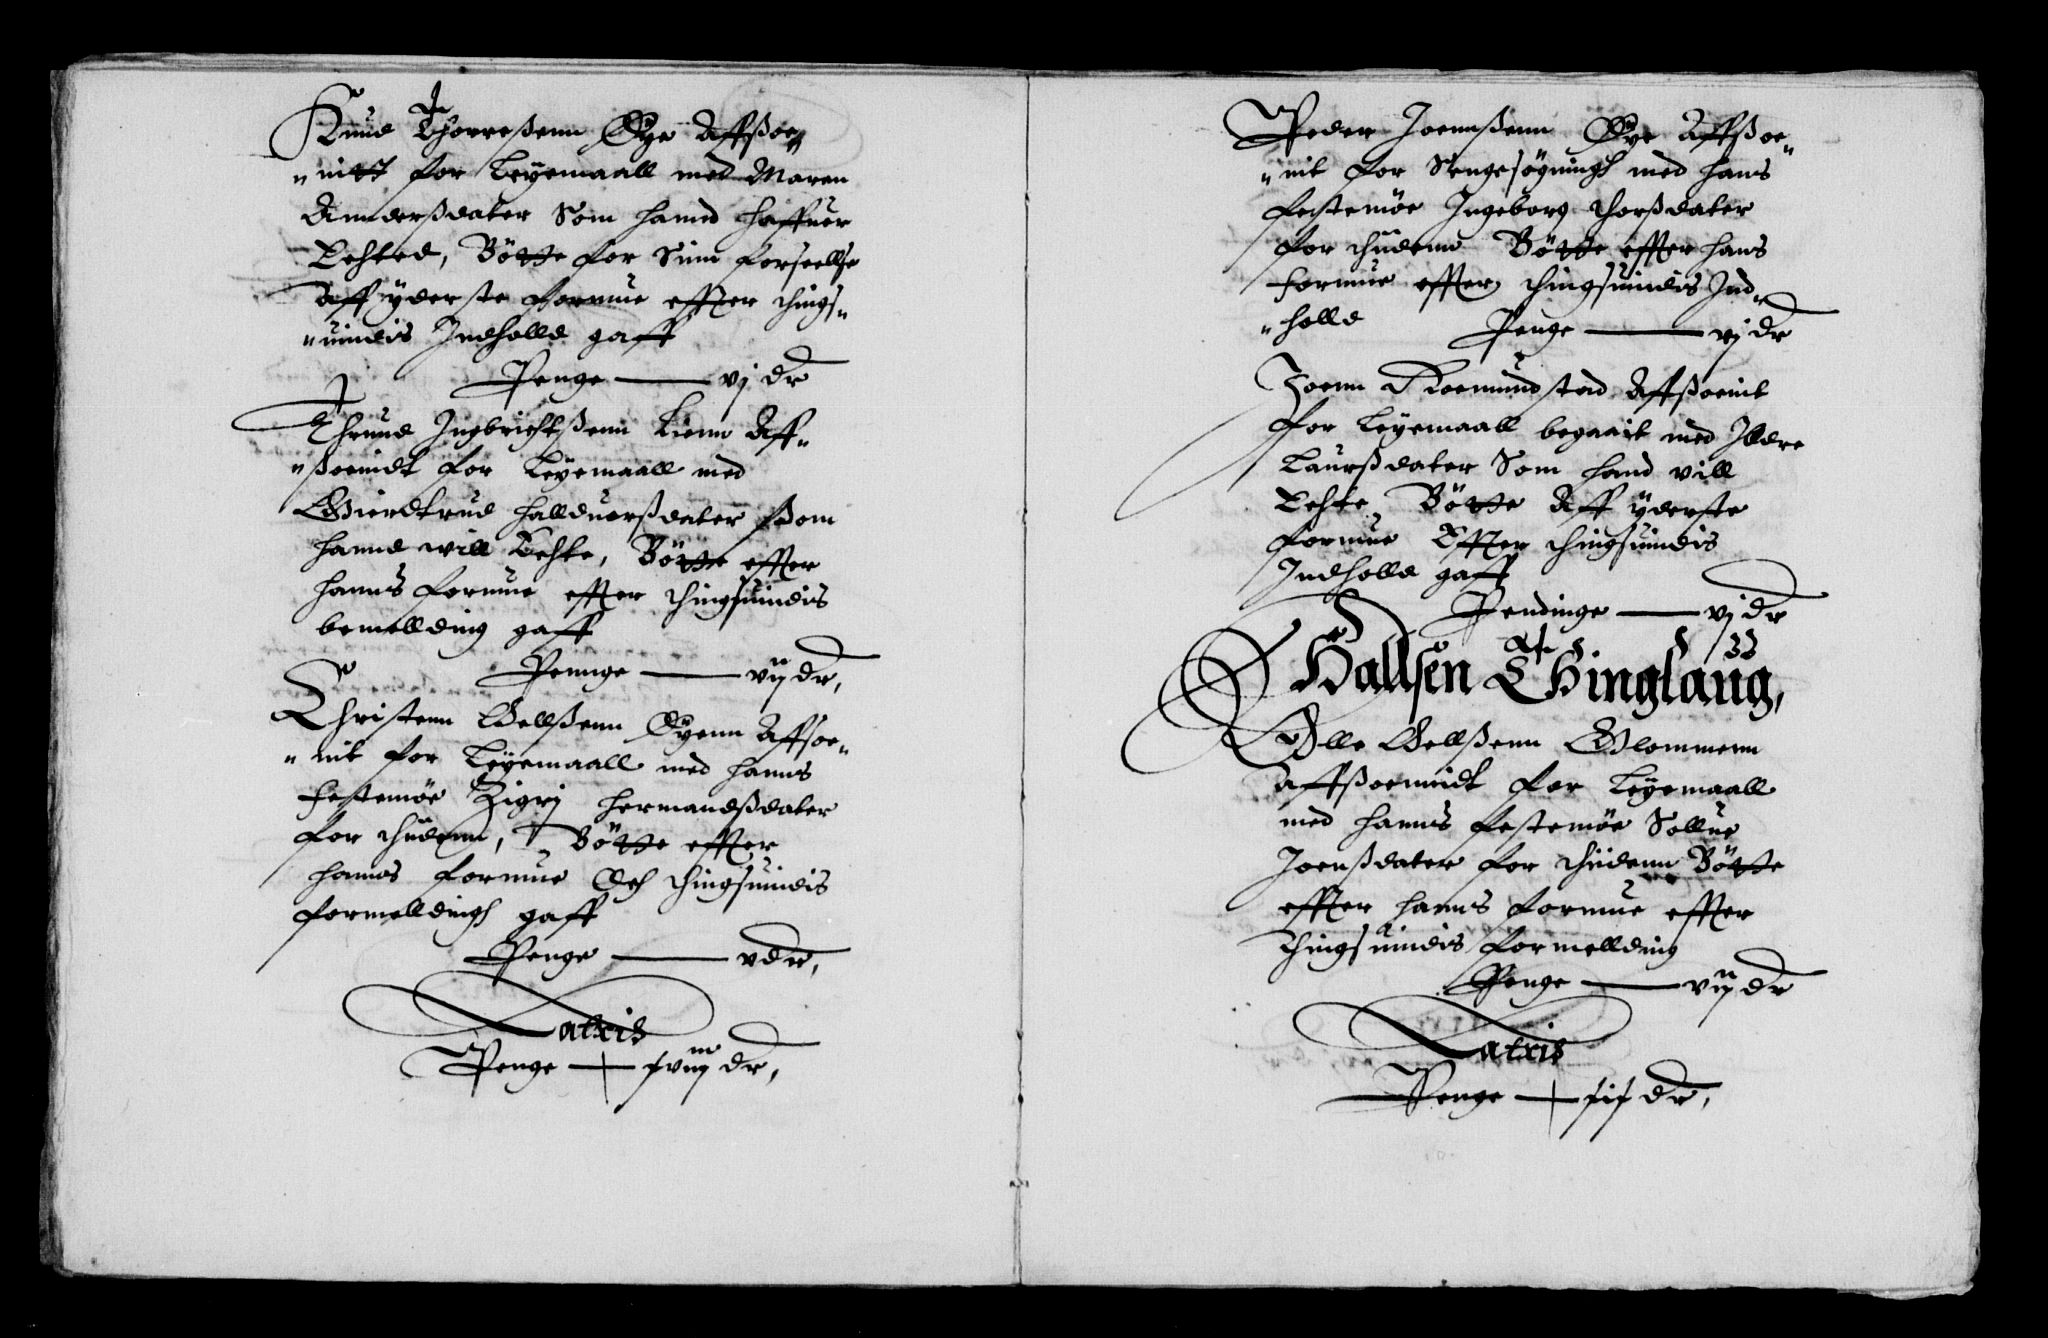 Knud Thorresenn Øye Affsoe„
„nitt for Leyemaall med Maren
Anndersdater Som hannd haffuer
Echted, Bötte for Sinn forseellse
Aff ÿderste formue effter things„
„uindis Indholld gaff
Penge — vj dr
Thrund Ingbrichtsenn Lienn Aff„
„soenidt for Leÿemaall med
Gierdtrud halduorsdater ssom
hannd will Echte, Bötte effter
hanns formue effter thingsuindis
bemellding gaff
Pennge — vij dr,
Christenn Oellsenn Øyenn Affsoe„
„nit for Leÿemaall med hanns
festemöe Zigrj hermandsdater
for thidenn, Bötte effter
hanns formue Och thingsuindis
formelldingh gaff
Penge — v dr,
Latris
Penge — xviij dr,
Peder Joennsenn Øye Affsoe„
„nit for Sengesögningh med hans
festemöe Ingeborg thorsdater
for thidenn Bötte effter hans
formue effter thingsuindis Ind„
„holld Penge — vj dr
Joenn Roemundstad Affsoenit
for Leÿemaall begaait med Ildre
Laursdater Som hand vill
Echte Bötte Aff ÿderste
formue Effter thingsuindis
Indholld gaff
Pendinge — vj dr
Hallsen Thinglaug,
Olle Oellsenn Glommenn
Affsoennidt for Leÿemaall
med hanns festemöe Sollue
Joensdater for thidenn Bötte
effter hanns formue effter
thingsuindis formellding
Penge — vij dr
Latris
Penge — xix dr,